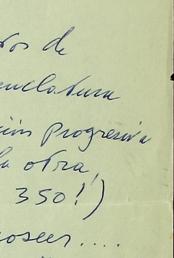 ros de
enclatura
ción progresiva
la otra,
350!)
poseer....